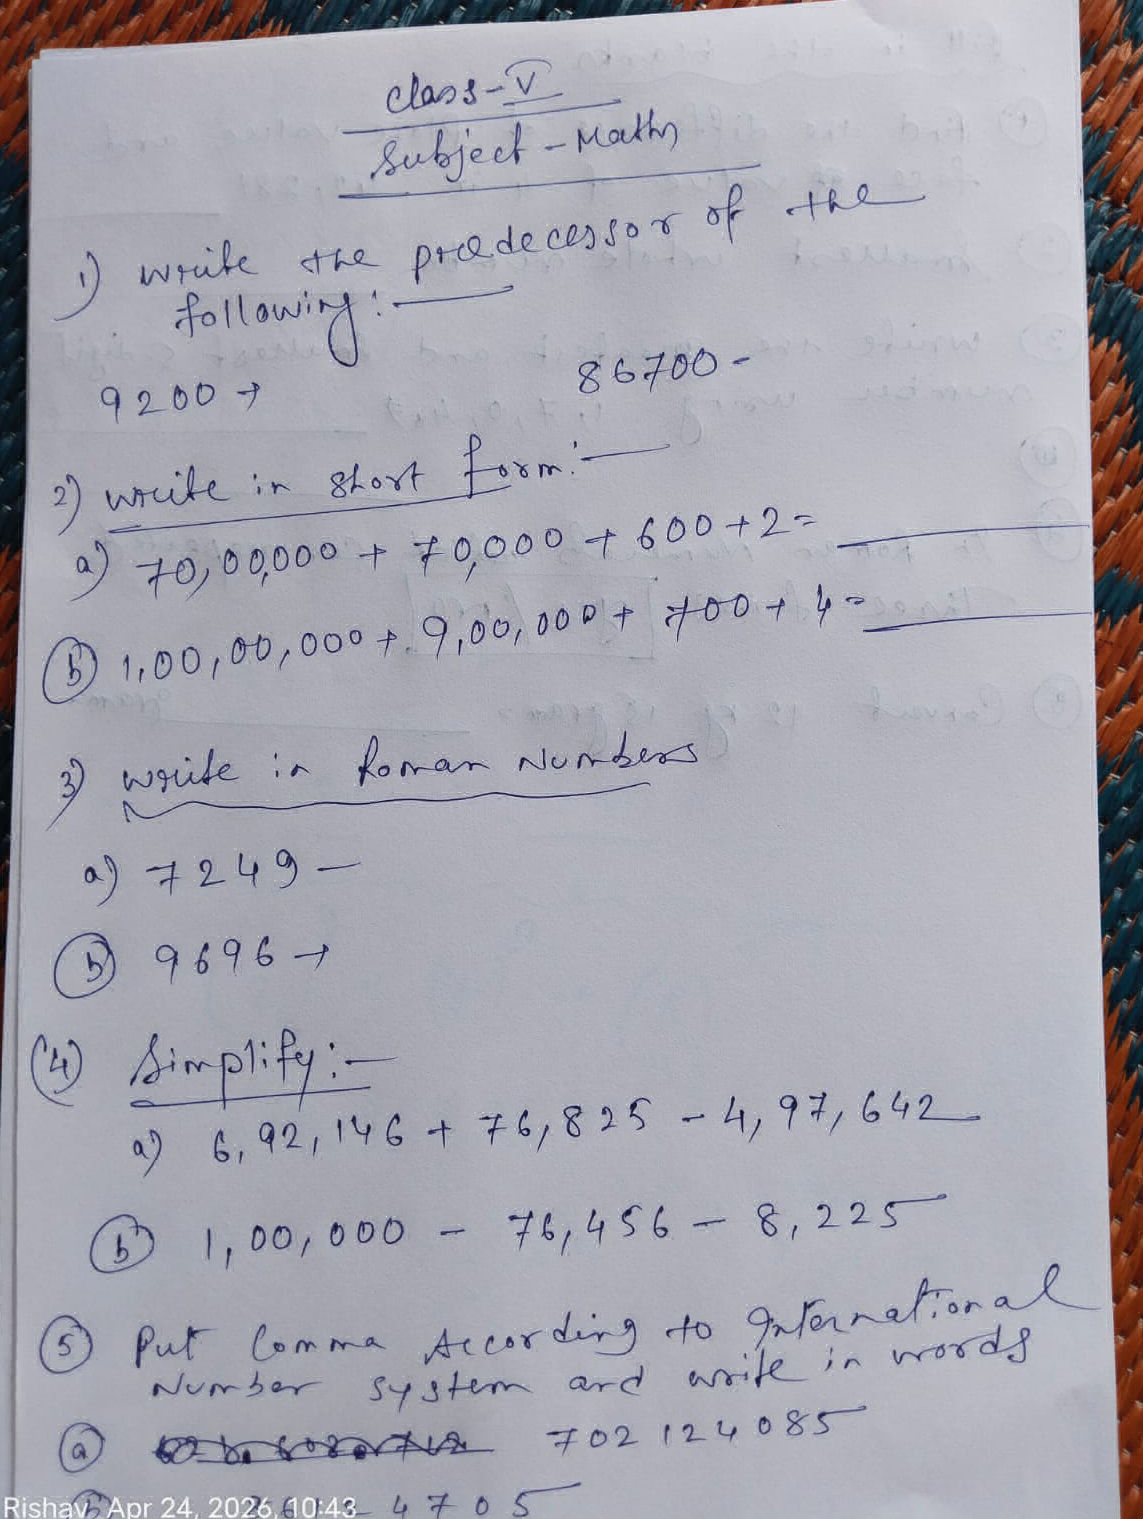 Class - V
Subject - Maths
1) Write the predecessor of the
following :-
9200 → 86700 -
2) Write in short form :-
a) 70,00,000 + 70,000 + 600 + 2 =
b) 1,00,00,000 + 9,00,000 + 700 + 4 =
3) Write in Roman Numbers
a) 7249 -
b) 9696 →
(4) Simplify :-
a) 6,92,146 + 76,825 - 4,97,642
b) 1,00,000 - 76,456 - 8,225
5) Put Comma According to International
Number system and write in words
a) 702124085
4705
Rishav, Apr 24, 2026, 10:43